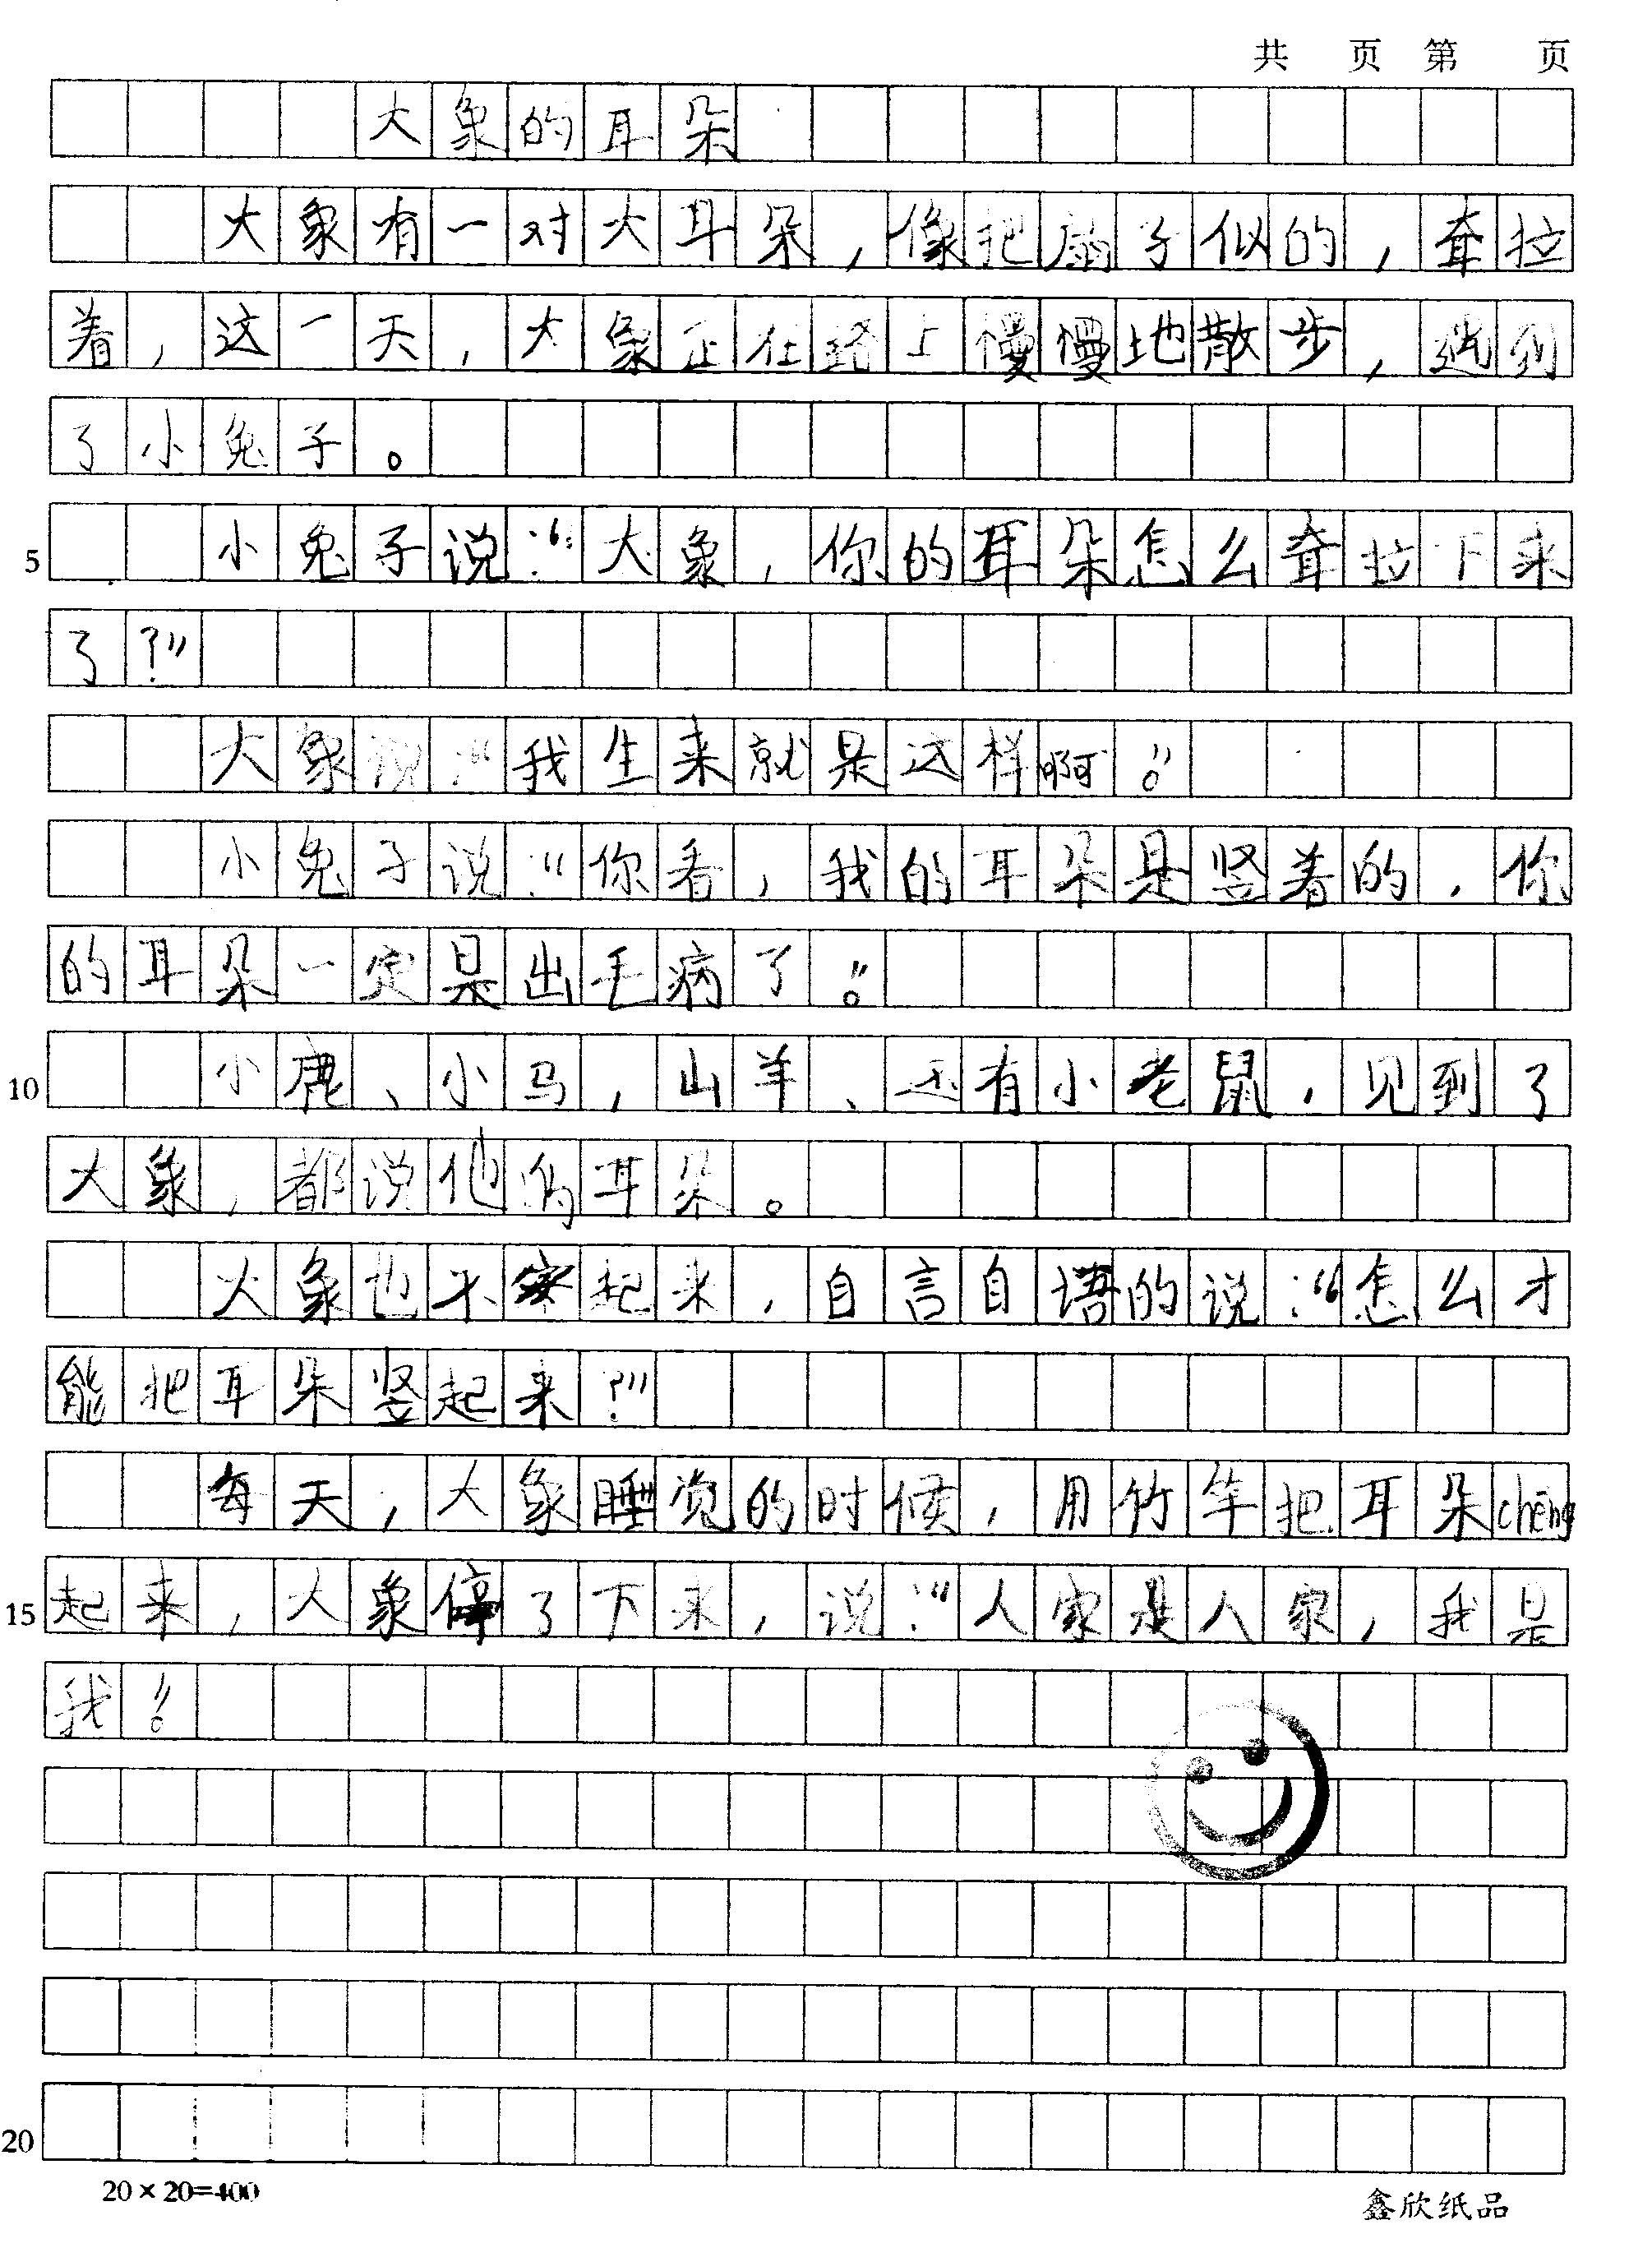 共 页 第 页
大象的耳朵
大象有一对大耳朵，像把扇子似的，耷拉
着，这一天，大象正在路上慢慢地散步，遇到
了小兔子。
5 小兔子说：“大象，你的耳朵怎么耷拉下来
了？”
大象说：“我生来就是这样啊。”
小兔子说：“你看，我的耳朵是竖着的，你
的耳朵一定是出毛病了。”
10 小鹿、小马，山羊、还有小老鼠，见到了
大象，都说他的耳朵。
大象也不安起来，自言自语的说：“怎么才
能把耳朵竖起来？”
每天，大象睡觉的时候，用竹竿把耳朵chēng
15 起来，大象停了下来，说：“人家是人家，我是
我！”
20
20×20=400
鑫欣纸品